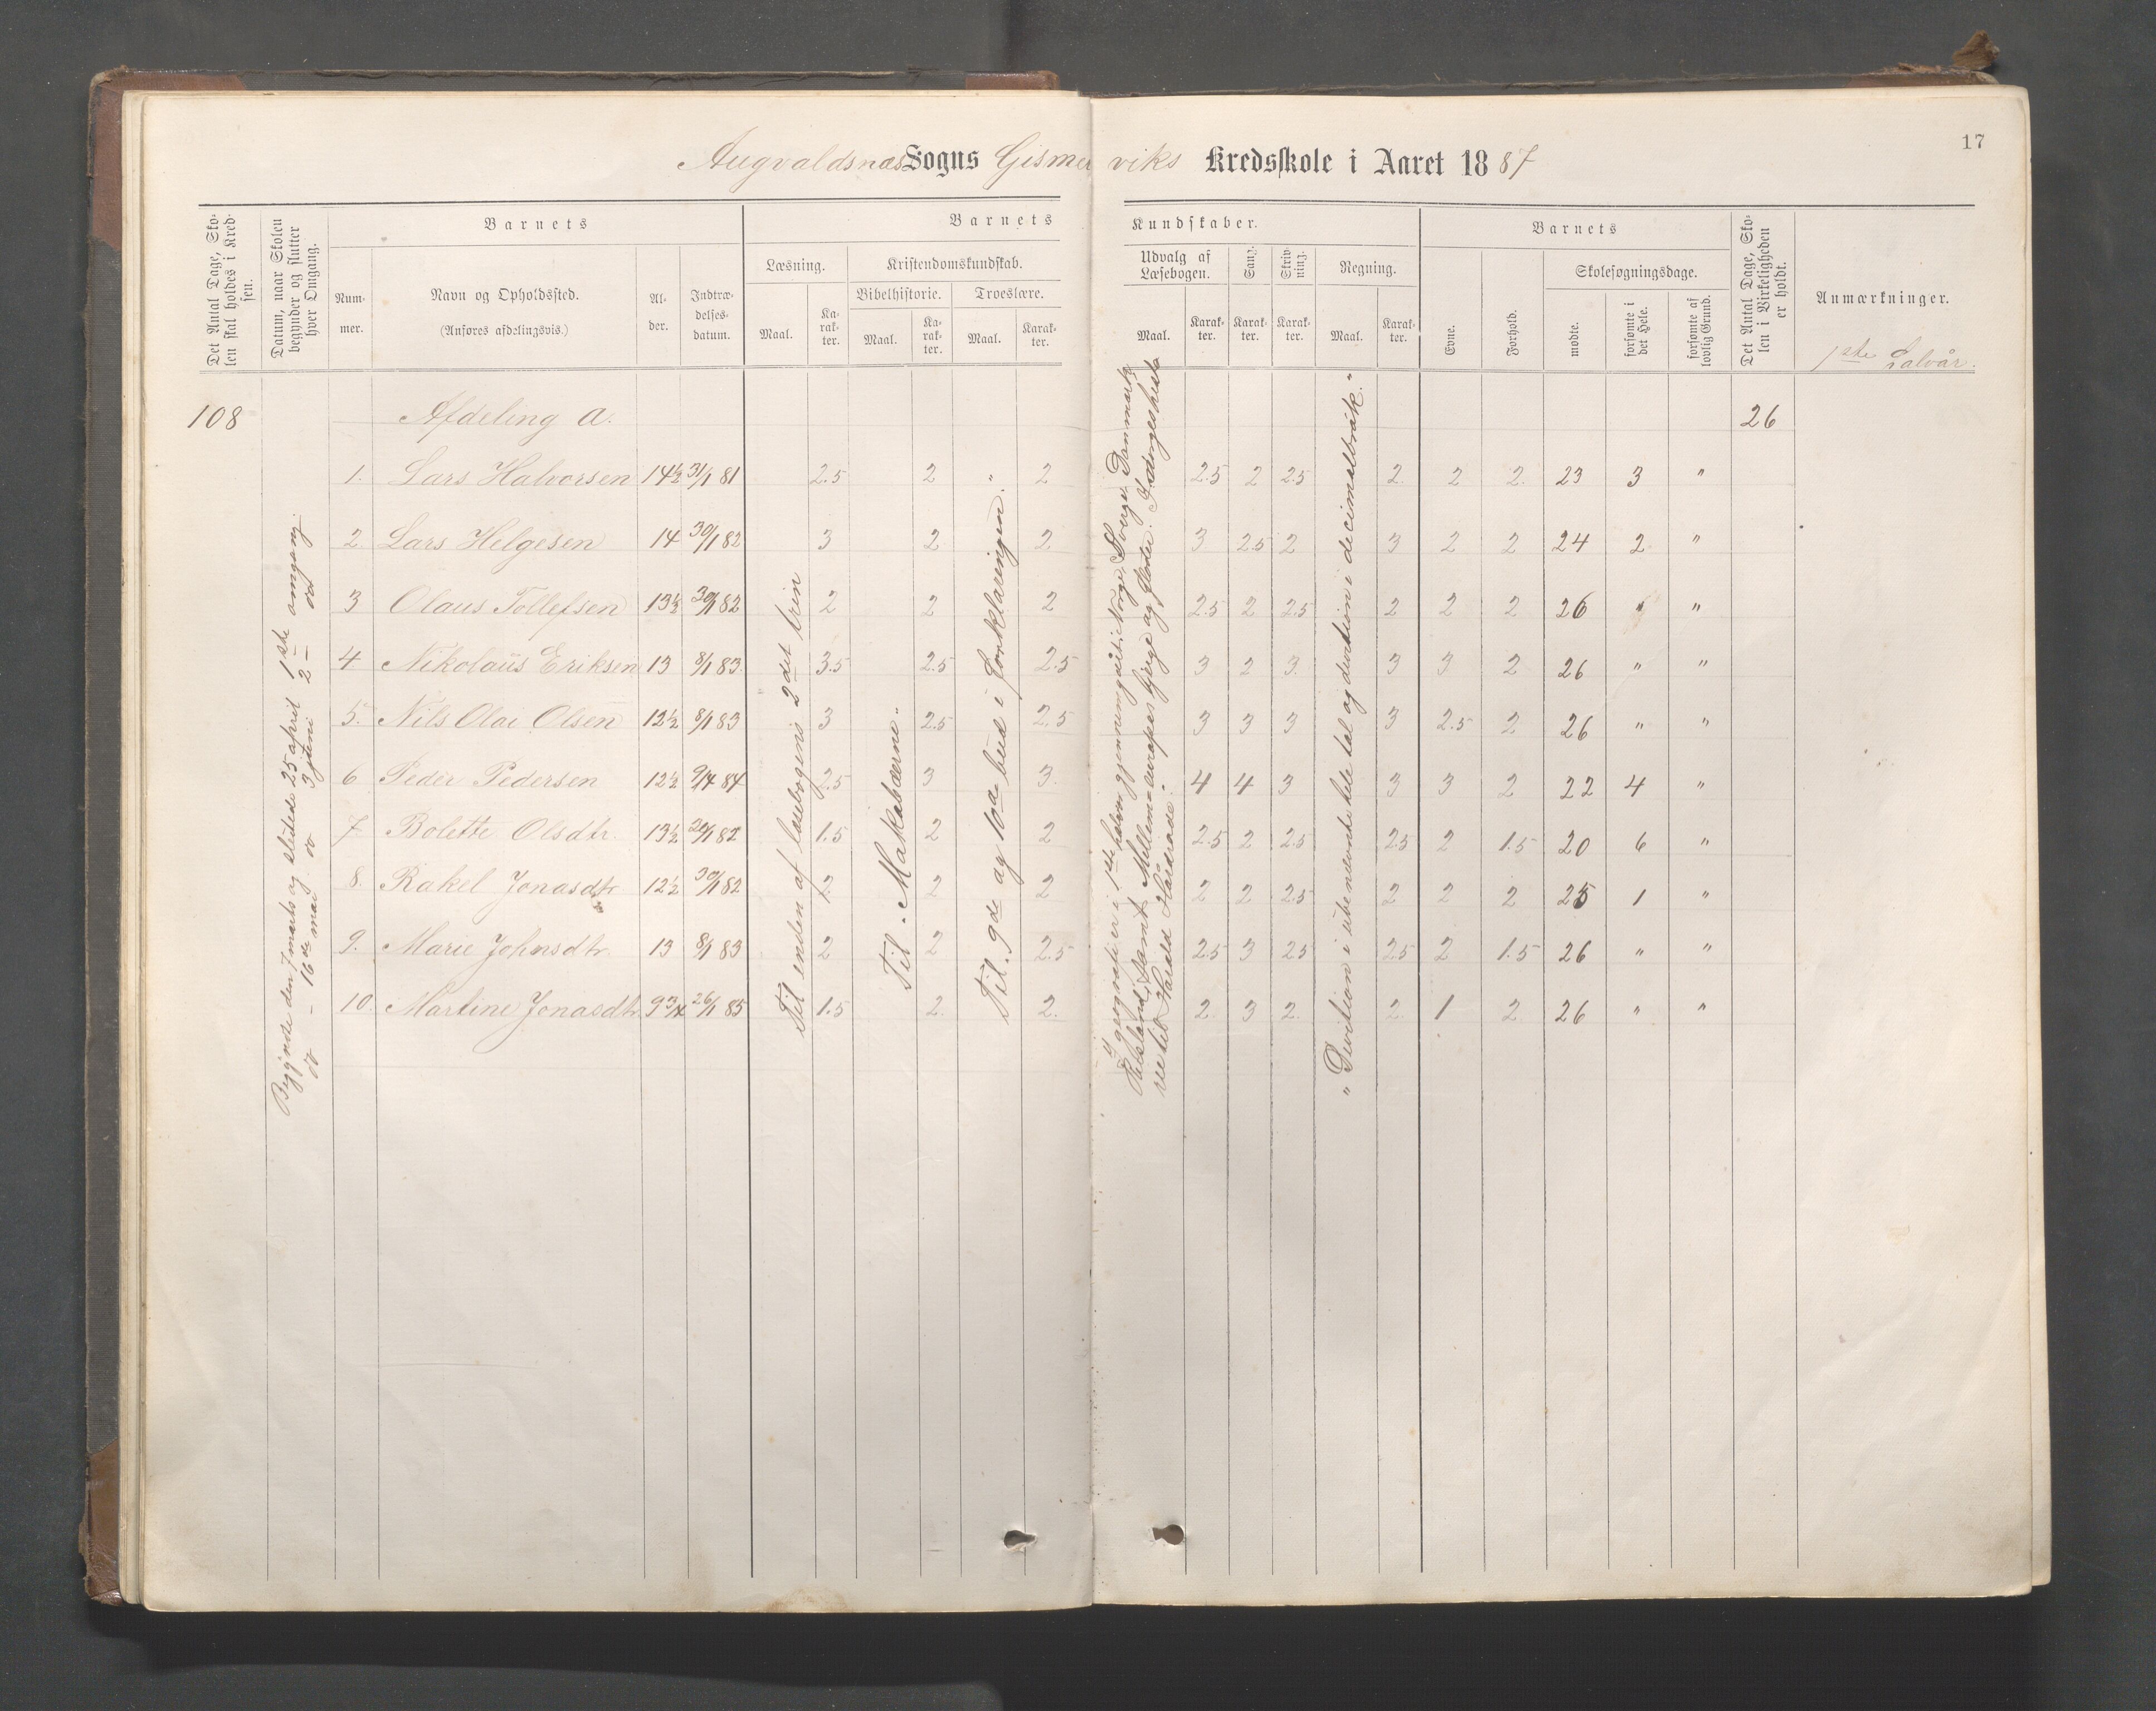 17
Augvaldsnæs Sogns Gismer viks Kredsskole i Aaret 1887
Det Antal Dage, Skolen skal holdes i Kredsen.
Datum, naar Skolen begynder og slutter hver Omgang.
Barnets
Barnets Kundskaber.
Barnets
Det Antal Dage, Skolen i Virkeligheden er holdt.
Anmærkninger.
Nummer.
Navn og Opholdssted.
(Anføres afdelingsvis.)
Alder.
Indtrædelsesdatum.
Læsning.
Kristendomskundskab.
Bibelhistorie.
Troeslære.
Udvalg af Læsebogen.
Sang.
Skrivning.
Regning.
Evne.
Forhold.
Skolesøgningsdage.
Maal. Karakter. Maal. Karakter. Maal. Karakter. Maal. Karakter. Karakter. Karakter. Maal. Karakter.
mødte.
forsømte i det Hele.
forsømte af lovlig Grund.
1ste halvår.
108 Afdeling a. 26
1. Lars Halvorsen 14½ 31/1 81 2.5 2 " 2 2.5 2 2.5 2. 2 2. 23 3 "
2 Lars Helgesen 14 30/1 82 3 2 2 3 2.5 2 3 2 2 24 2 "
3 Olaus Tollefsen 13½ 30/1 82 2 2 2 2.5 2 2.5 2 2 2 26 " "
4 Nikolaüs Eriksen 13 8/1 83. 3.5 2.5 2.5 3 2 3. 3 3 2 26 " "
5. Nils Olai Olsen 12½ 8/1 83 3 2.5 2.5 3 3 3 3 2.5 2 26 " "
6 Peder Pedersen 12½ 9/4 84 2.5 3 3. 4 4 3 3 3 2 22 4 "
7 Bolette Olsdtr. 13½ 20/1 82 1.5 2 2 2.5 2 2.5 2.5 2 1.5 20 6 "
8. Rakel Jonasdtr 12½ 30/1 82 2 2 2 2 2 2.5 2 2 2 25 1 "
9. Marie Johnsdtr. 13 8/1 83 2 2 2.5 2.5 3 2.5 2.5 2 1.5 26 " "
10. Martine Jonasdtr. 9¾ 26/1 85 1.5 2. 2. 2. 3 2. 2. 1 2 26 " "
Begÿnte den 7 marts og slütede 25 april 1ste omgang.
do – 16de mai do 3 jüni 2– do
Til enden af læsebogens 2det trin
Til "Makabæerne".
Til "9de og 10de bud i Forklaringen."
"I geografi er i 1ste halvår gjennemgået: Norge, Sverge, Danmark,
Rüsland, samt Mellem-europas bjerge og floder. I norgeshisto
rie til Harald Hårdråde".
"Division i übenævnte hele tal og division i decimalbrøk."